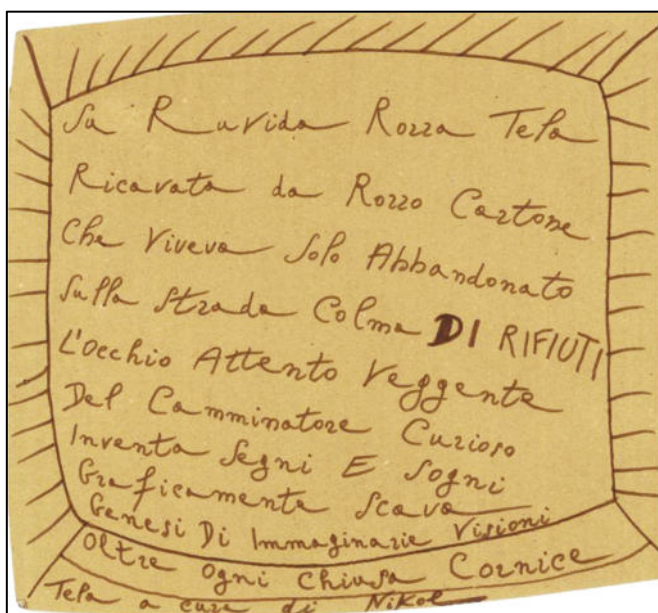 Su Ruvida Rozza Tela
Ricavata da Rozzo Cartone
Che Viveva Solo Abbandonato
Sulla Strada Colma DI RIFIUTI
L'occhio Attento Veggente
Del Camminatore Curioso
Inventa Segni E Sogni
Graficamente Scava
Genesi Di Immaginarie Visioni
Oltre Ogni Chiusa Cornice
Tela a cura di Nikol